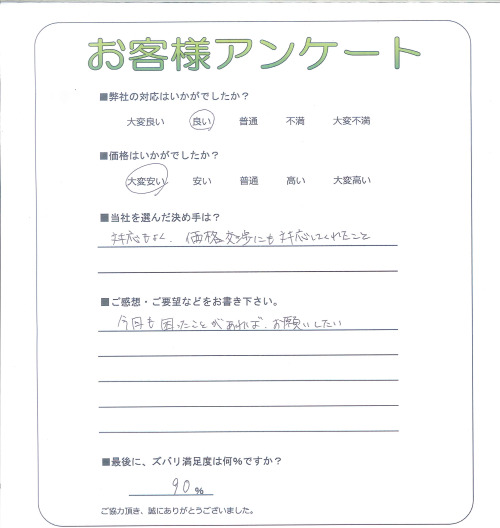 お客様アンケート
■弊社の対応はいかがでしたか？
大変良い 良い 普通 不満 大変不満
■価格はいかがでしたか？
大変安い 安い 普通 高い 大変高い
■当社を選んだ決め手は？
対応もよく、価格交渉にも対応してくれたこと
■ご感想・ご要望などをお書き下さい。
今月も困ったことがあれば、お願いしたい
■最後に、ズバリ満足度は何％ですか？
90%
ご協力頂き、誠にありがとうございました。